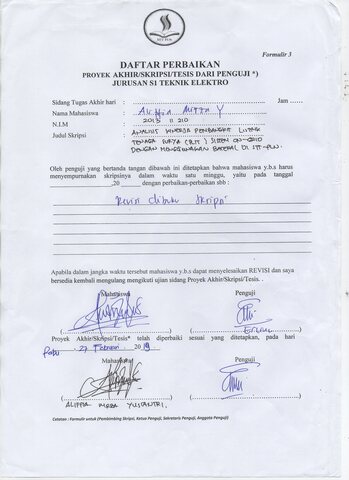 STT PLN
Formulir 3
DAFTAR PERBAIKAN
PROYEK AKHIR/SKRIPSI/TESIS DARI PENGUJI *)
JURUSAN S1 TEKNIK ELEKTRO
Sidang Tugas Akhir hari : Jam ......
Nama Mahasiswa : Aliffia Meta Y
N.I.M : 2015 11 210
Judul Skripsi : ANALISIS KINERJA PEMBANGKIT LISTRIK
TENAGA SURYA (PLTS) SISTEM ON-GRID
DENGAN MENGGUNAKAN BATERAI DI STT-PLN.
Oleh penguji yang bertanda tangan dibawah ini ditetapkan bahwa mahasiswa y.b.s harus
menyempurnakan skripsinya dalam waktu satu minggu, yaitu pada tanggal
,20 dengan perbaikan-perbaikan sbb :
Revisi dibuku Skripsi
Apabila dalam jangka waktu tersebut mahasiswa y.b.s dapat menyelesaikan REVISI dan saya
bersedia kembali mengulang mengikuti ujian sidang Proyek Akhir/Skripsi/Tesis. .
Mahasiswa Penguji
Proyek Akhir/Skripsi/Tesis* telah diperbaiki sesuai yang ditetapkan, pada hari
Rabu 27 Februari 2019
Mahasiswa Penguji
ALIFFIA YUSANTRI.
Catatan : Formulir untuk (Pembimbing Skripsi, Ketua Penguji, Sekretaris Penguji, Anggota Penguji)